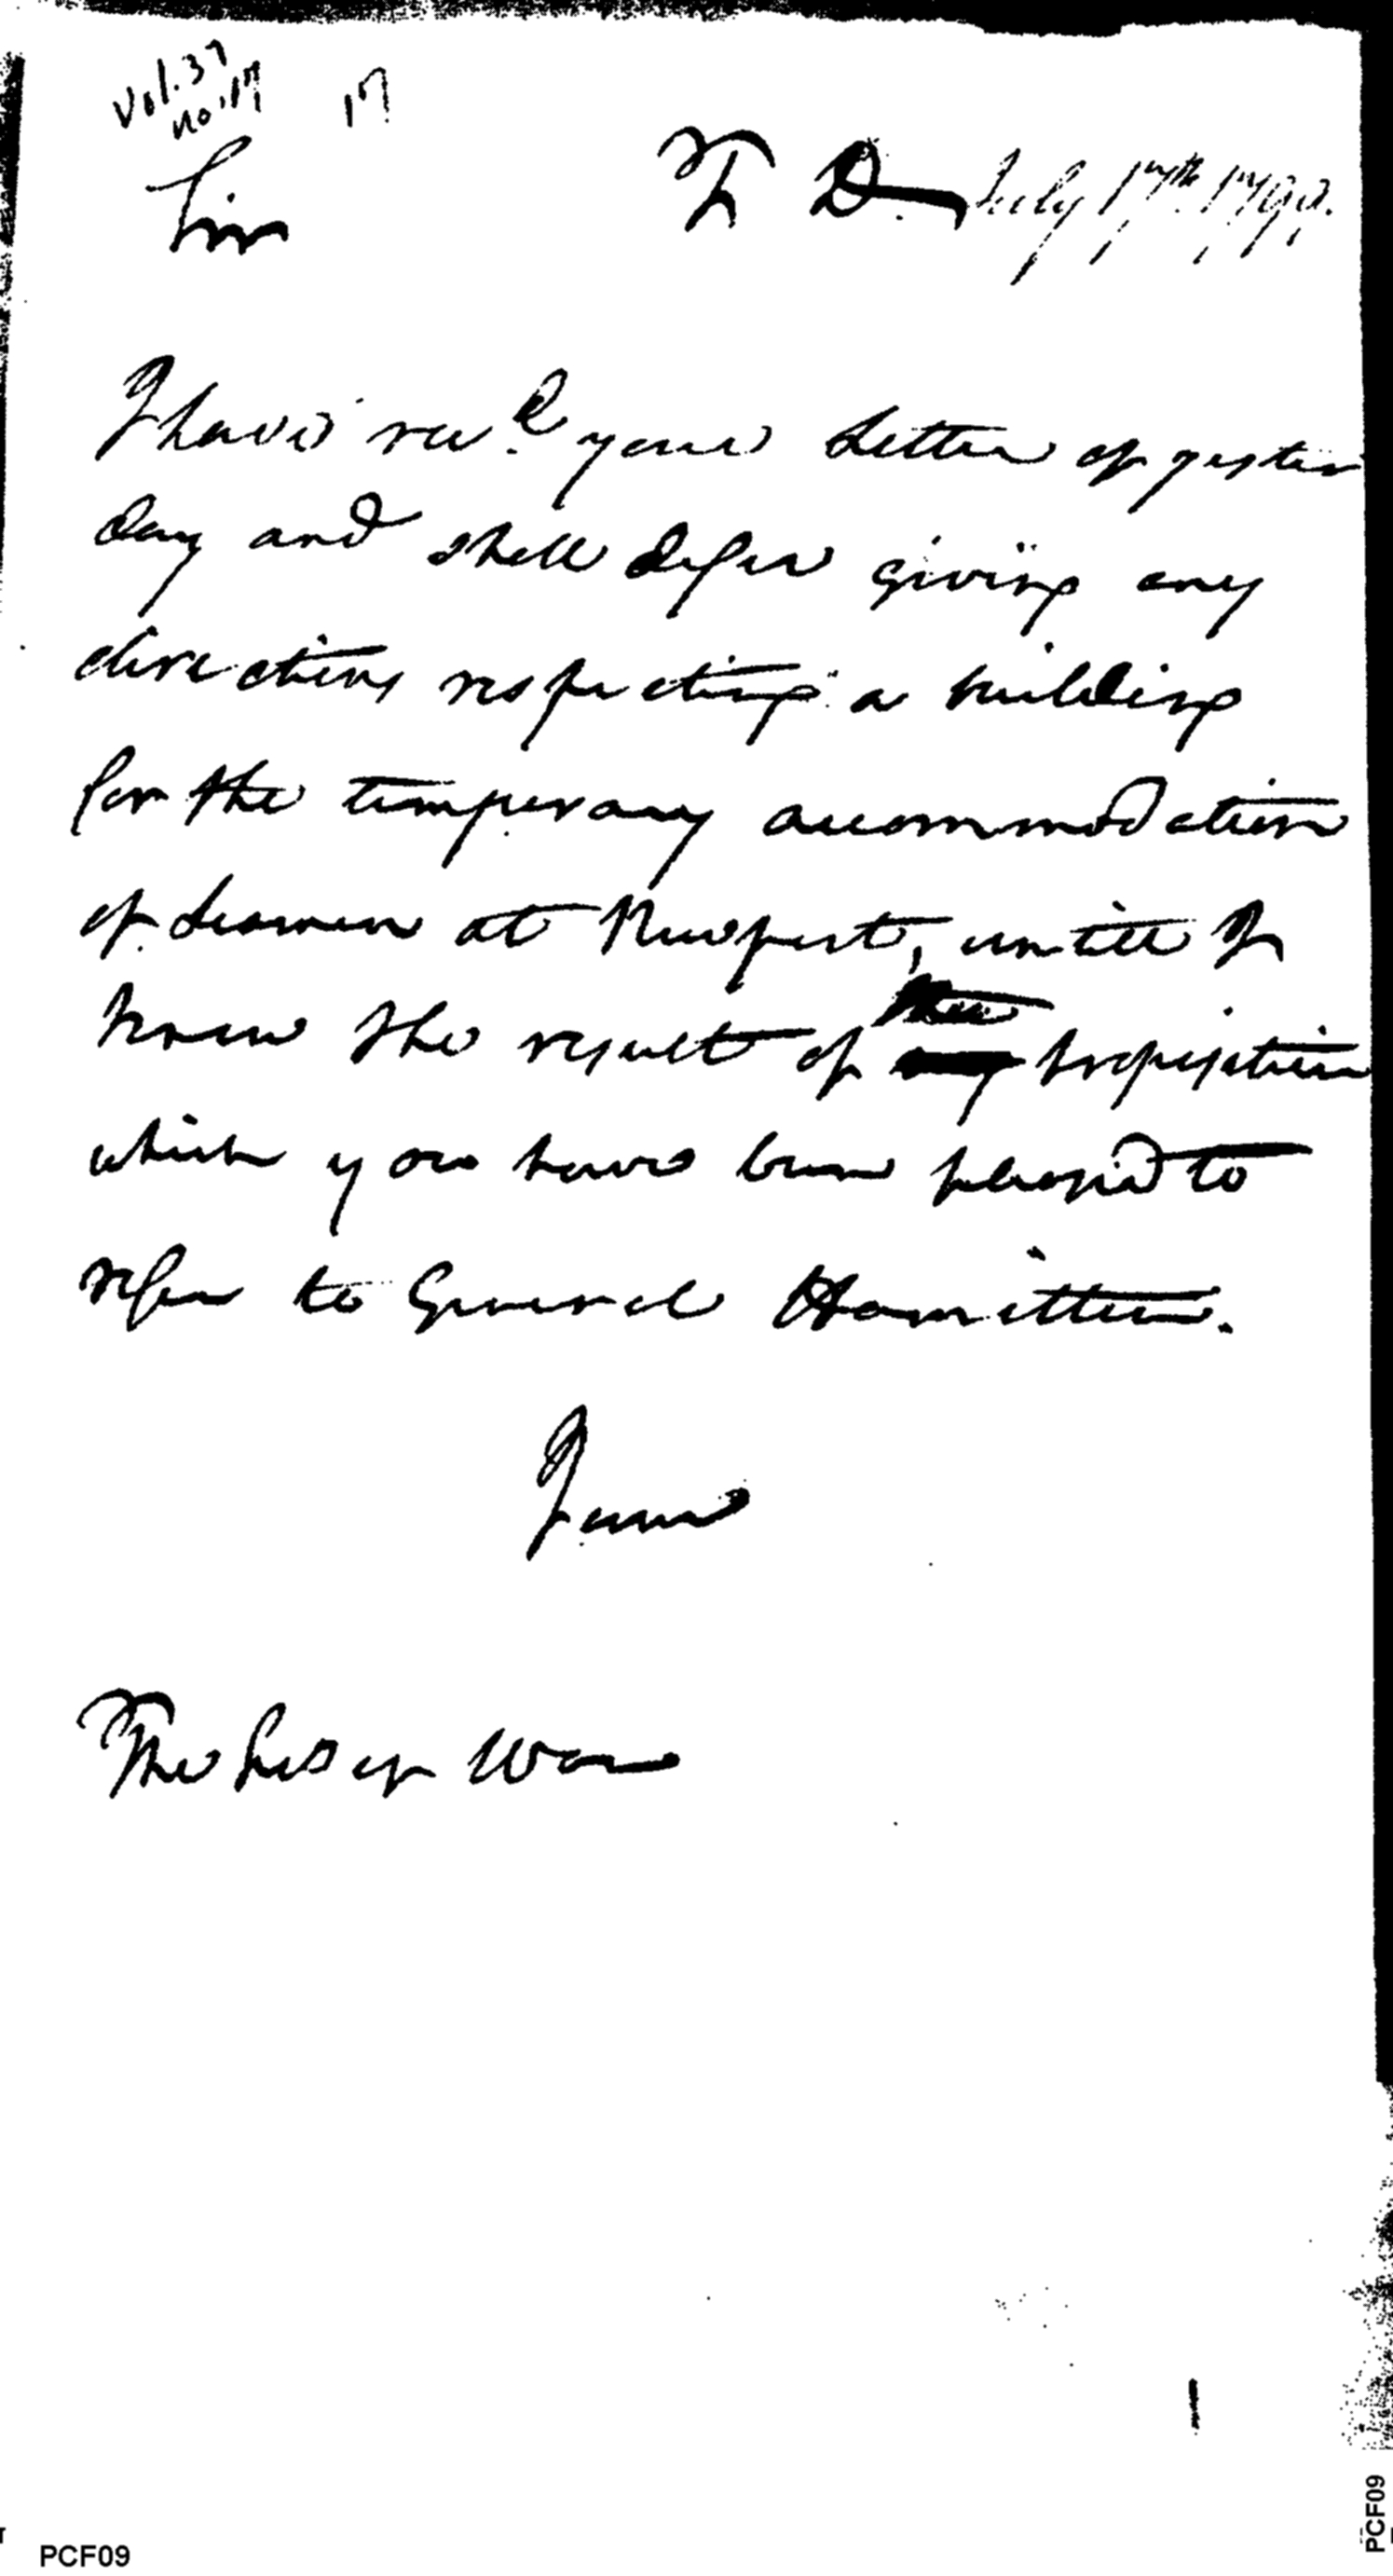 Vol. 37
no. 17
17
Sir
T D. July 17th. 179
I have recd. your Letter of yester
day and shall defer giving any
directions respecting a building
for the temporary accommodation
of Seamen at Newport, untill I
know the result of the proposition
which you have been pleased to
refer to General Hamilton.
I am
The Sec of War
PCF09
PCF09